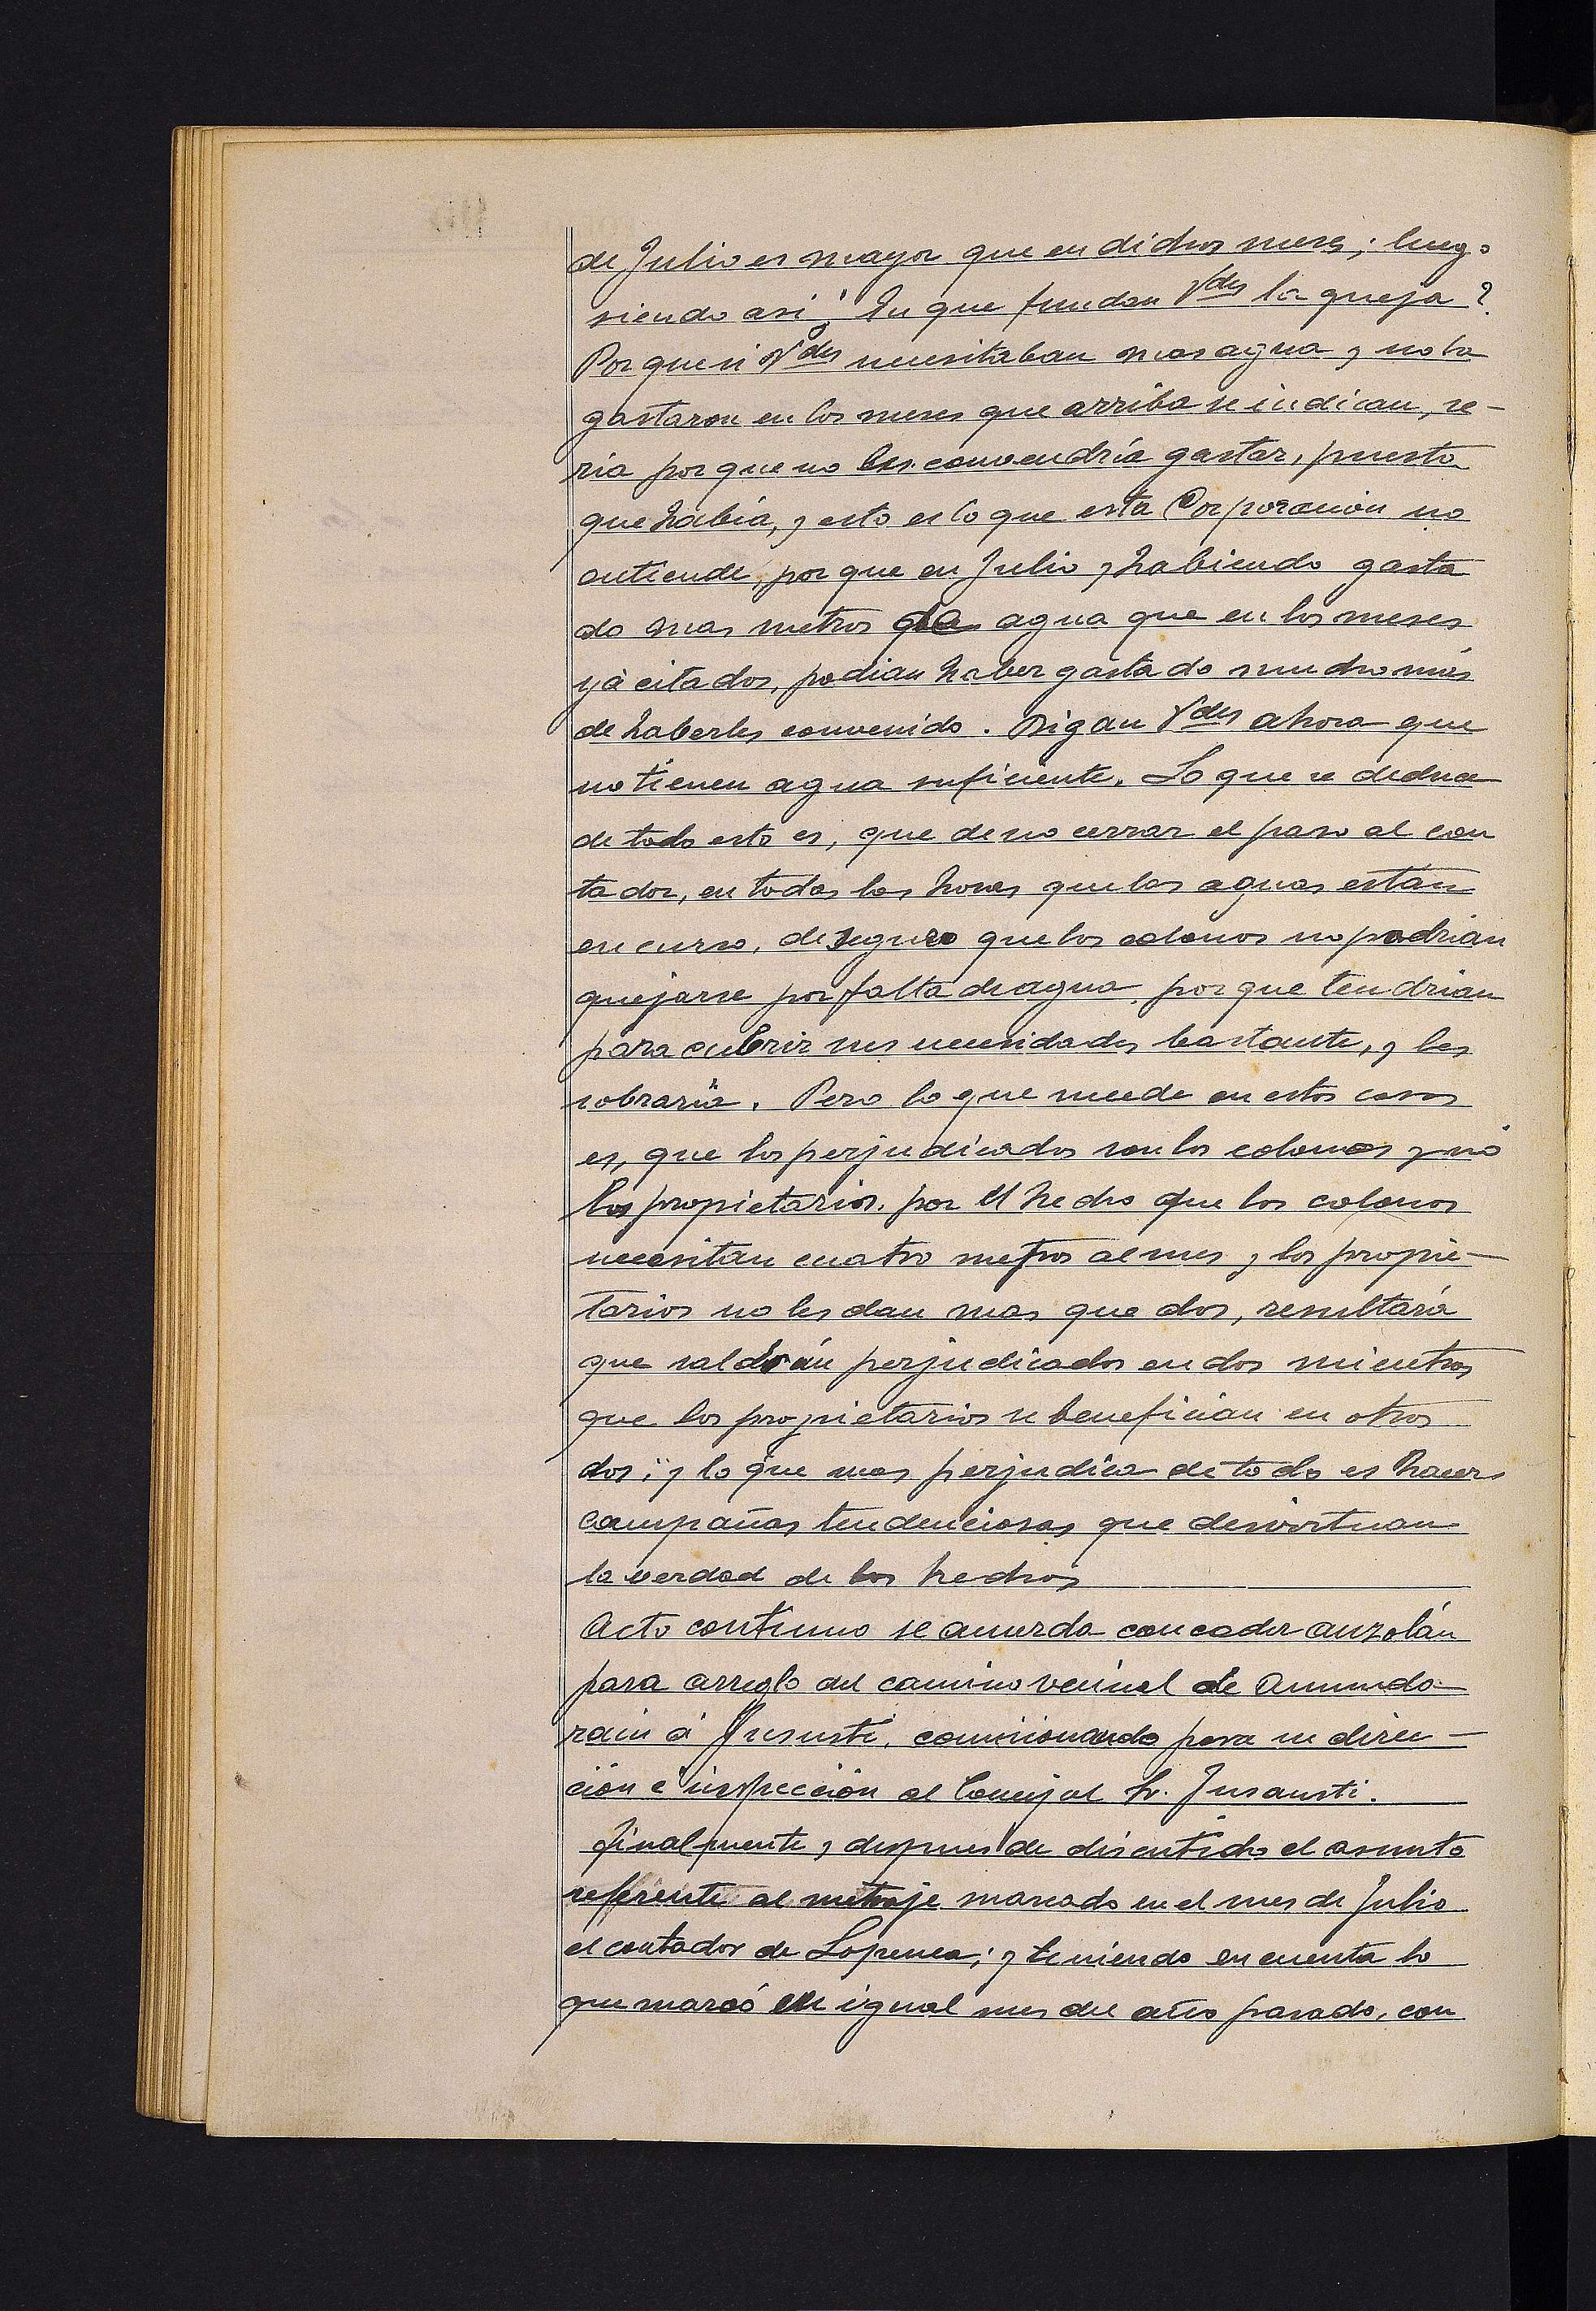 de Julio es mayor que en dichos meses; luego
siendo asi ¿En que fundan Vdes la queja?
Por que si Vdes necesitaban mas agua y no la
gastaron en los meses que arriba se indican, se-
ria por que no les convendría gastar, puesto
que había, y esto es lo que esta Corporacion no
entiende, por que en Julio y habiendo gasta
do mas metros de agua que en los meses
yá citados, podian haber gastado mucho más
de haberles convenido. Digan Vdes ahora que
no tienen agua suficiente. Lo que se deduce
de todo esto es, que de no cerrar el paso al con
tador, en todas las horas que las aguas están
en curso, de seguro que los colonos no podrian
quejarse por falta de agua, por que tendrian
para cubrir sus necesidades bastante, y les
sobraría. Pero lo que sucede en estos casos
es, que los perjudicados son los colonos y nó
los propietarios, por el hecho que los colonos
necesitan cuatro metros al mes y los propie-
tarios no les dan mas que dos, resultará
que saldrán perjudicados en dos mientras
que los propietarios se benefician en otros
dos; y lo que mas perjudica de todo es hacer
campañas tendenciosas que desvirtuan
la verdad de los hechos
Acto continuo se acuerda conceder auzolán
para arreglo del camino vecinal de Amundo-
rain á Jususti, comisionando para su direc-
ción é inspección al Concejal Sr. Jusausti.
Finalmente, y despues de discutido el asunto
referente al metraje marcado en el mes de Julio
el contador de Lopenea; y teniendo en cuenta lo
que marcó en igual mes del año pasado, con